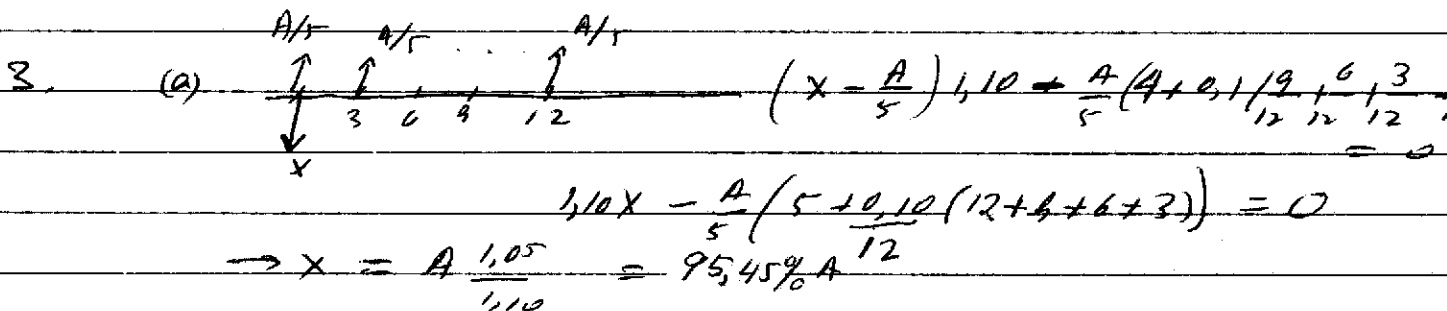 A/5 A/5 . . . A/5
3. (a) (x - A/5) 1,10 - A/5 (4 + 0,1 (9/12 + 6/12 + 3/12
3 6 9 12 = 0
x
1,10x - A/5 (5 + 0,10/12 (12+9+6+3)) = 0
→ x = A 1,05/1,10 = 95,45% A